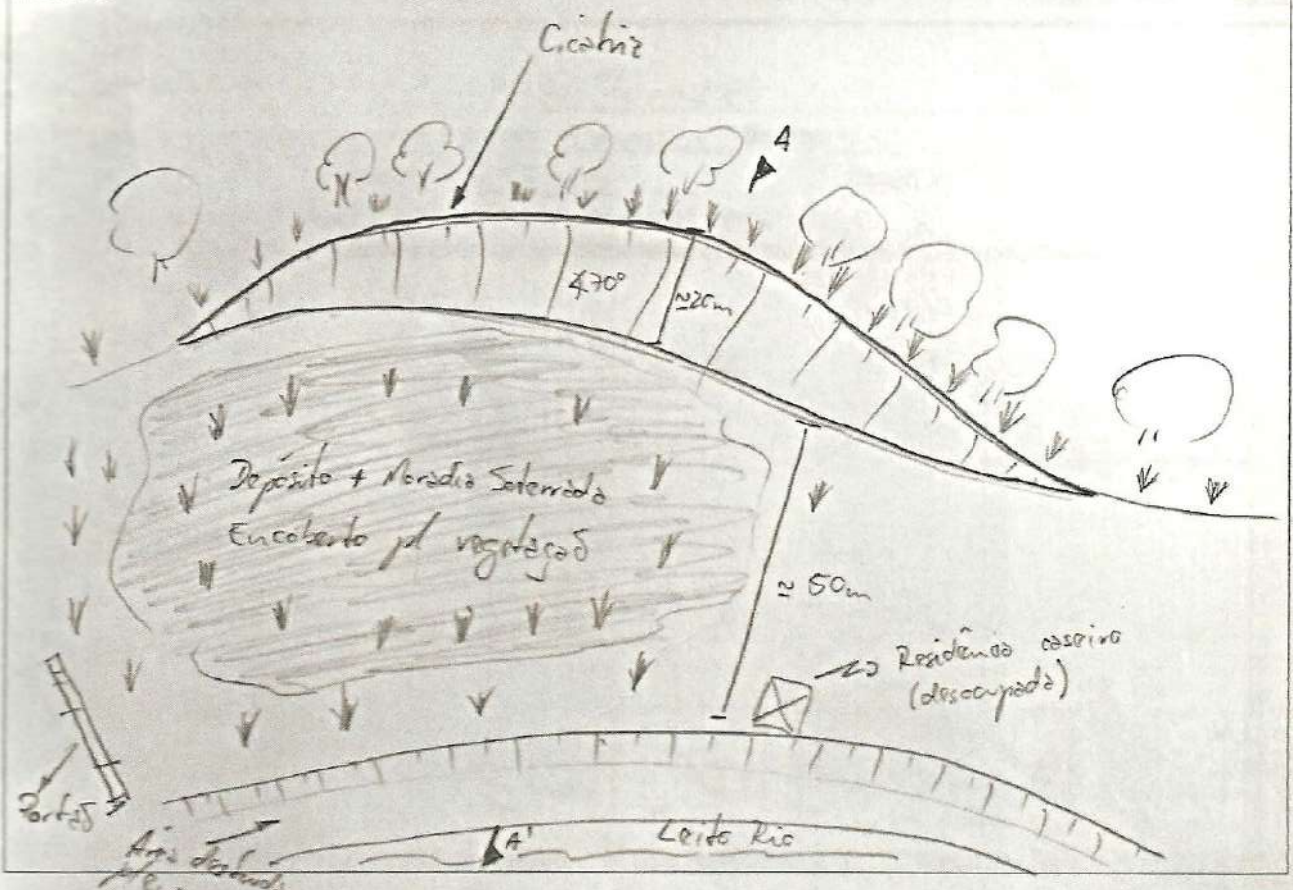 Cicatriz
A
∡70°
≃20m
Depósito + Moradia Soterrada
Encoberto p/ vegetação
≃ 50m
Residência caseiro
(desocupada)
Portão
A'
Leito Rio